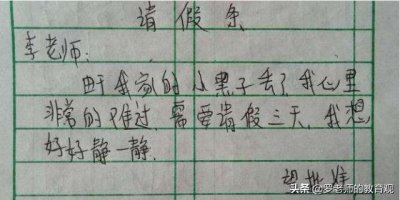 请假条
李老师:
由于我家的小黑子丢了我心里
非常的难过,需要请假三天,我想
好好静一静.
望批准
头条 @罗老师的教育观